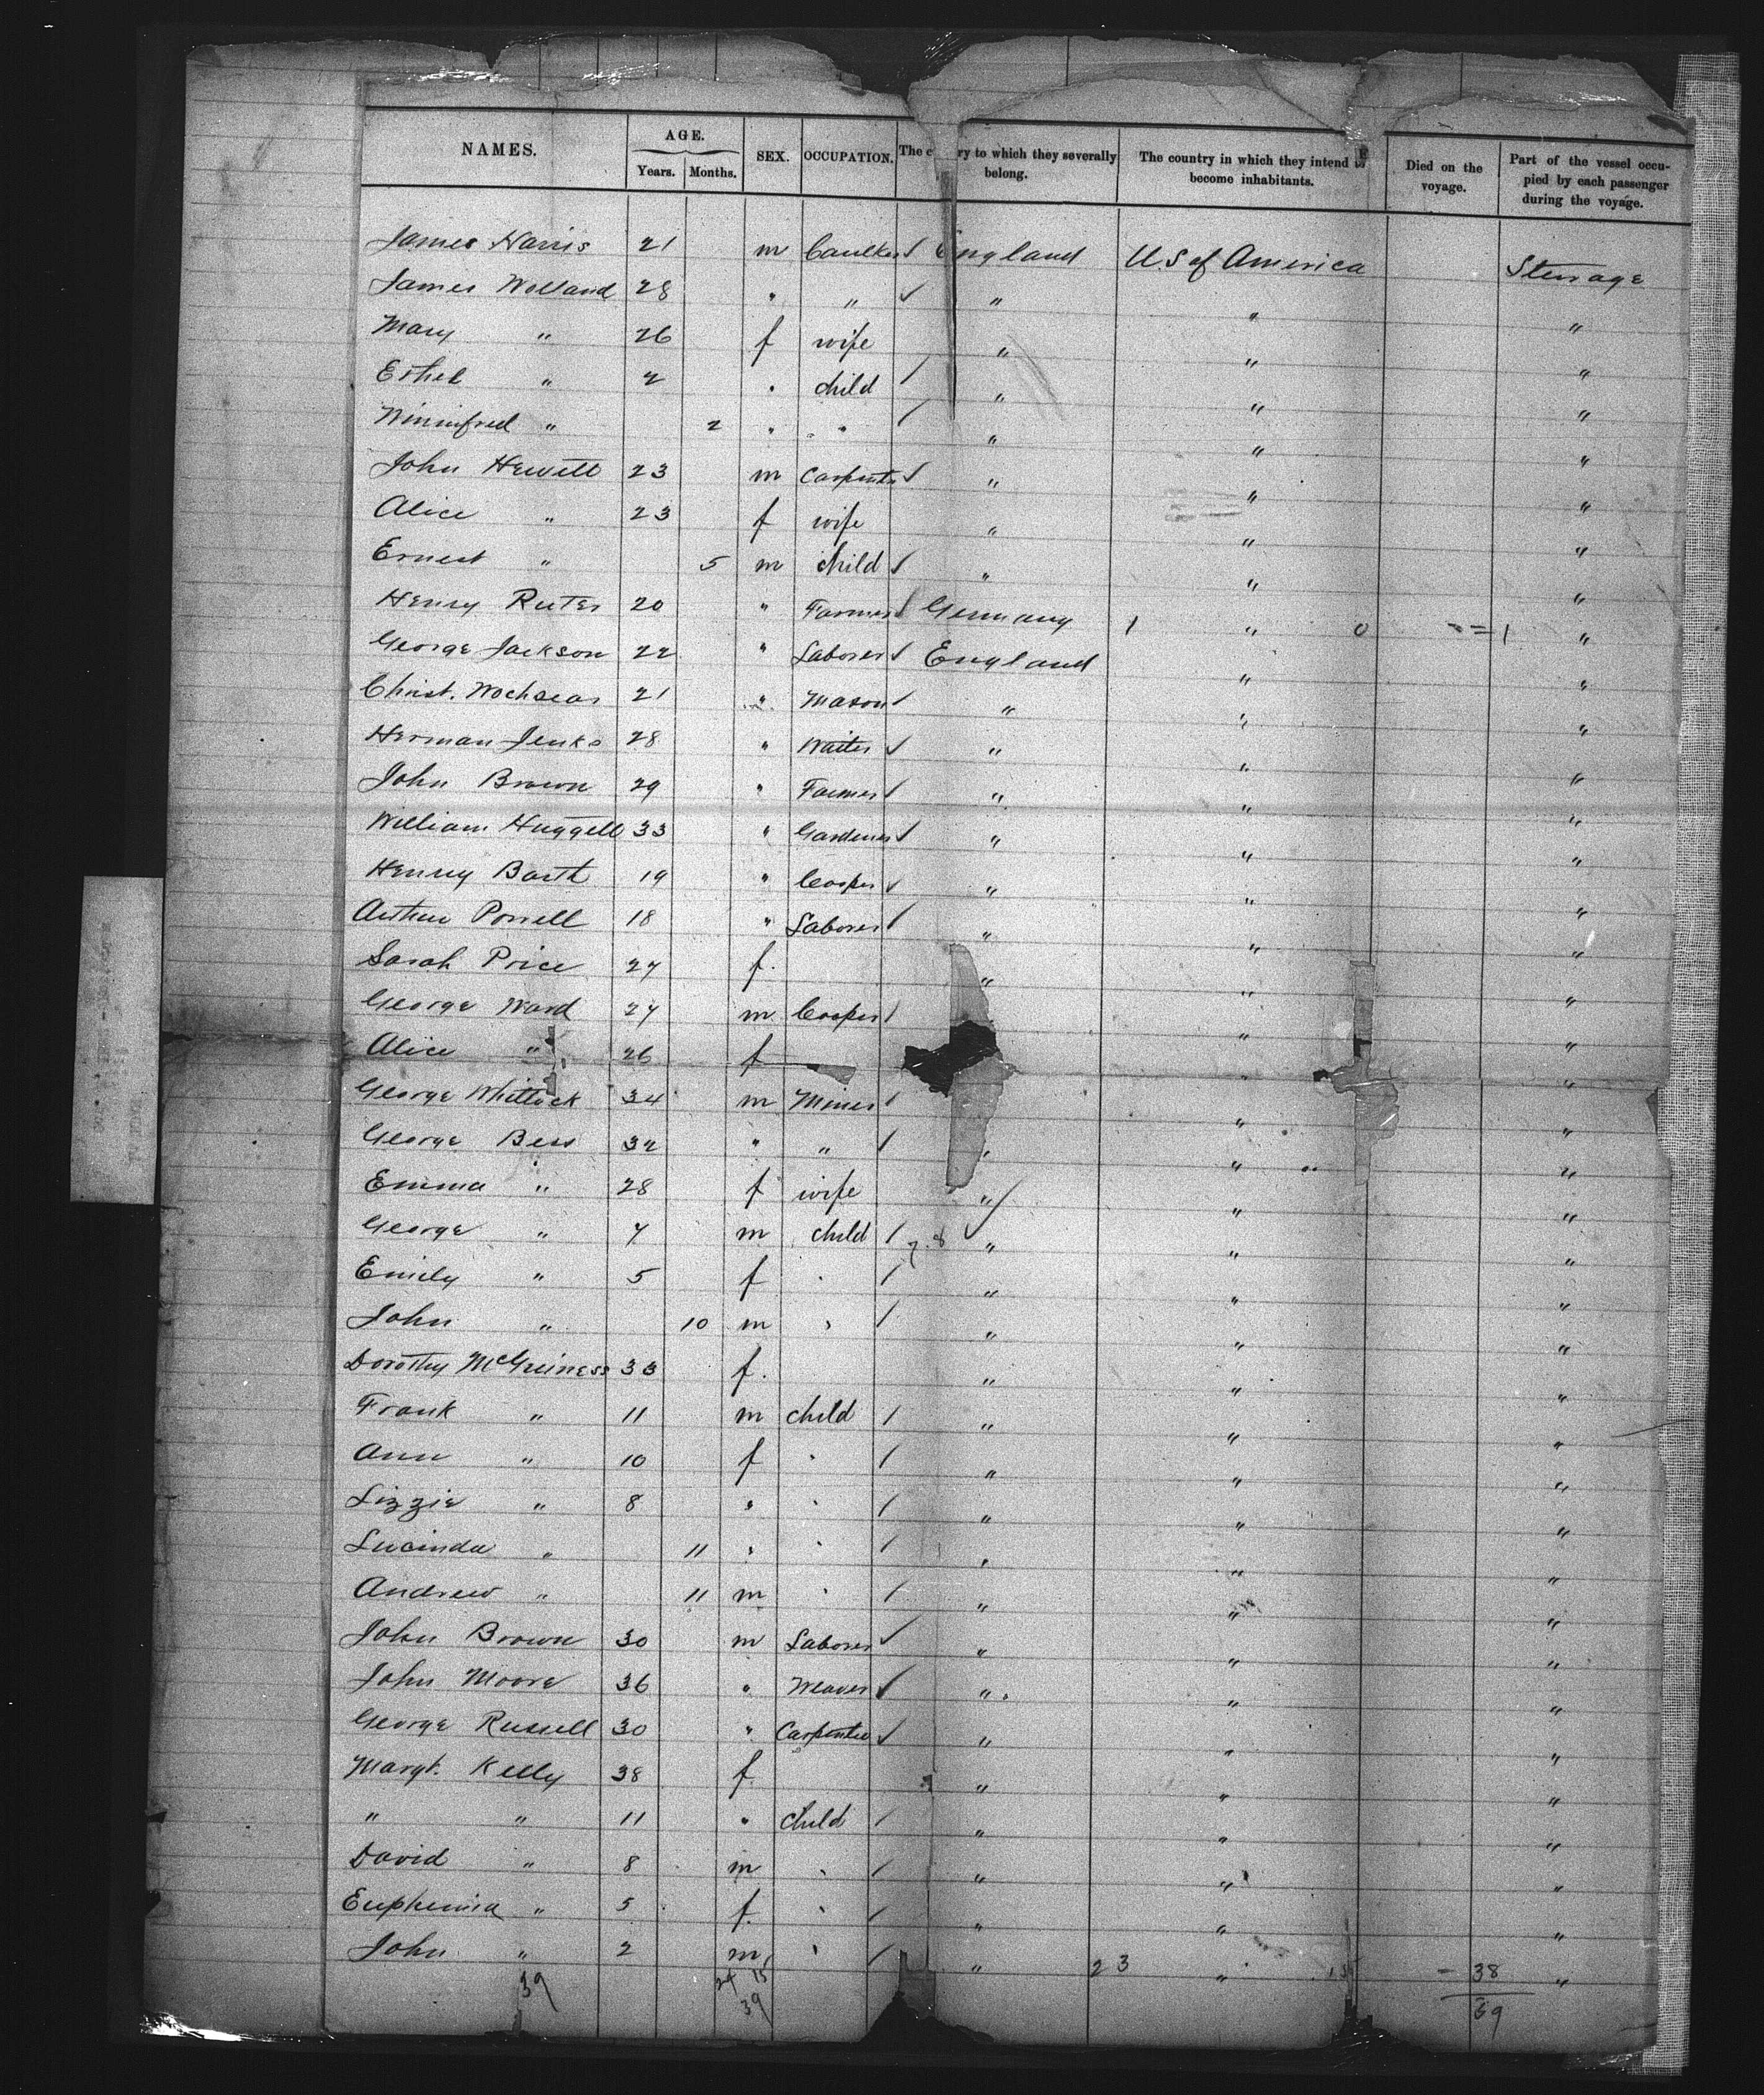 NAMES. AGE. Years. Months. SEX. OCCUPATION. The c ry to which they severally belong. The country in which they intend to become inhabitants. Died on the voyage. Part of the vessel occupied by each passenger during the voyage.
James Harris 21 m Caulker England U.S of America Steerage
James Wolland 28 " " " " "
Mary " 26 f wife " " "
Ethel " 2 " child " " "
Winnifred " 2 " " " " "
John Hewitt 23 m Carpenter " " "
Alice " 23 f wife " " "
Ernest " 5 m child " " "
Henry Ruter 20 " Farmer Germany 1 " 0 = 1 "
George Jackson 22 " Laborer England " "
Christ. 21 " Mason " " "
Herman Jenks 28 " Waiter " " "
John Brown 29 " Farmer " " "
William Huggell 33 " Gardener " " "
Henry Barth 19 " Cooper " " "
Arthur Powell 18 " Laborer " " "
Sarah Price 27 f. " " "
George Ward 27 m Cooper " "
Alice " 26 f " "
George Whittock 34 m Miner " "
George Bess 32 " " " " "
Emma " 28 f wife " " "
George " 7 m child 7.8 " " "
Emily " 5 f " " " "
John " 10 m " " " "
Dorothy McGuiness 33 f. " " "
Frank " 11 m child " " "
Ann " 10 f " " " "
Lizzie " 8 " " " " "
Lucinda " 11 " " " " "
Andrew " 11 m " " " "
John Brown 30 m Laborer " " "
John Moore 36 " Weaver " " "
George Russell 30 " Carpenter " " "
Margt. Kelly 38 f. " " "
" " 11 " child " " "
David " 8 m " " " "
Euphemia " 5 f. " " " "
John " 2 m " " 23 " 15 - 38 "
39 24 15 39
39